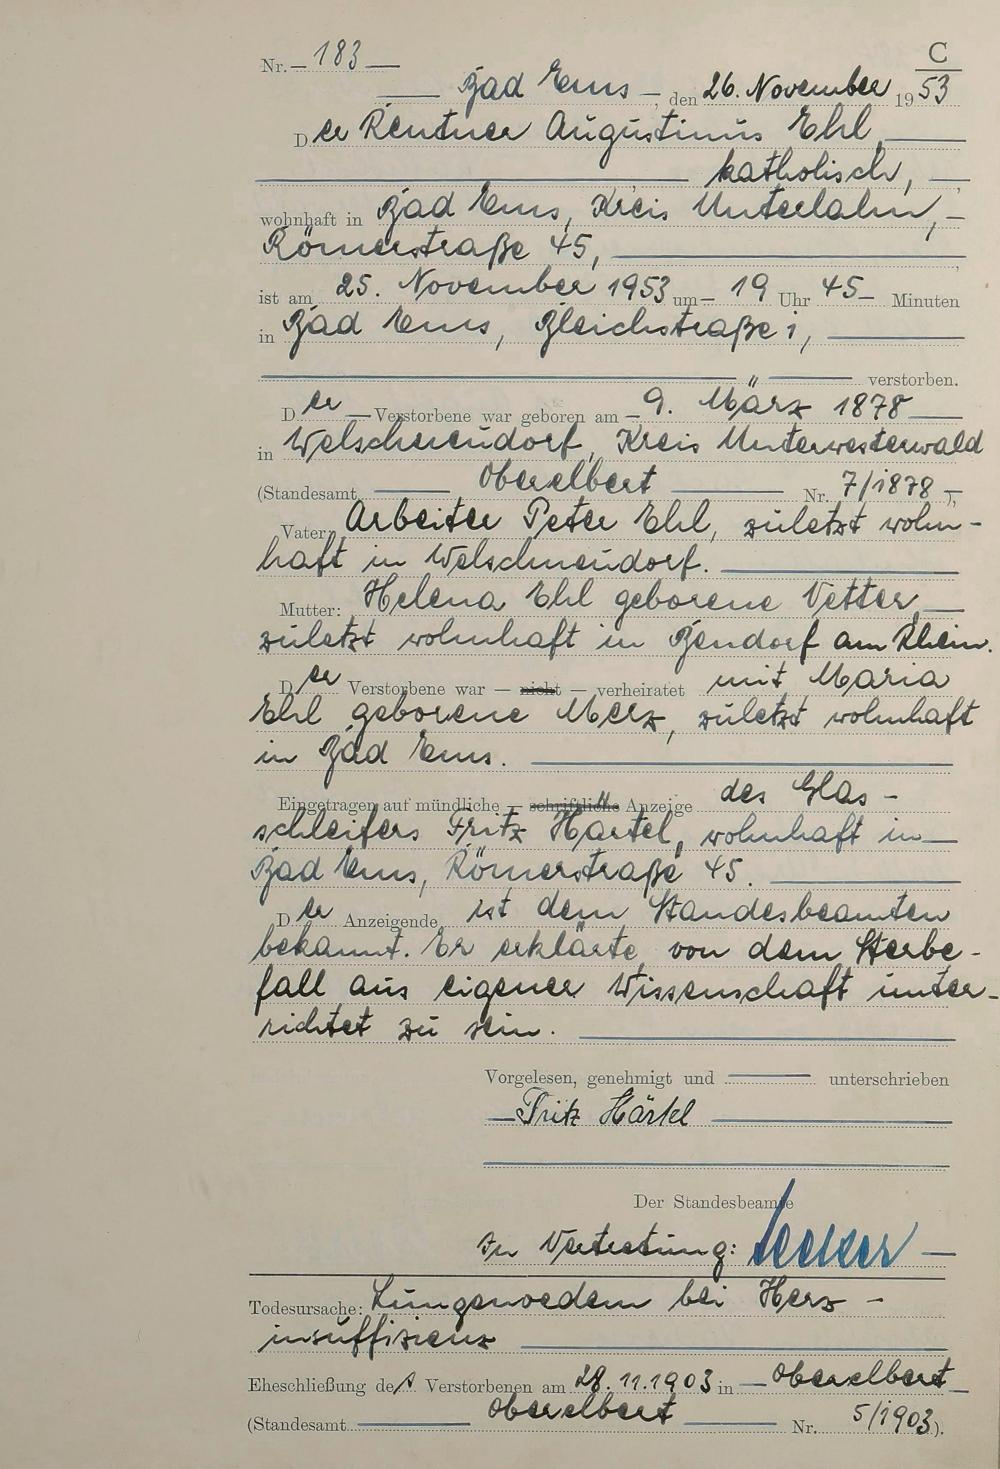 C
Nr. 183
Bad Ems, den 26. November 1953
Der Rentner Augustinus Ehl,
katholisch,
wohnhaft in Bad Ems, Kreis Unterlahn,
Römerstraße 45,
ist am 25. November 1953 um 19 Uhr 45 Minuten
in Bad Ems, Bleichstraße 1,
verstorben.
Der Verstorbene war geboren am 9. März 1878
in Welschneudorf, Kreis Unterwesterwald
(Standesamt Oberelbert Nr. 7/1878),
Vater: Arbeiter Peter Ehl, zuletzt wohn-
haft in Welschneudorf.
Mutter: Helena Ehl geborene Vetter,
zuletzt wohnhaft in Bendorf am Rhein.
Der Verstorbene war — nicht — verheiratet mit Maria
Ehl geborene Merz, zuletzt wohnhaft
in Bad Ems.
Eingetragen auf mündliche — schriftliche Anzeige des Glas-
schleifers Fritz Härtel, wohnhaft in
Bad Ems, Römerstraße 45.
Der Anzeigende ist dem Standesbeamten
bekannt. Er erklärte, von dem Sterbe-
fall aus eigener Wissenschaft unter-
richtet zu sein.
Vorgelesen, genehmigt und unterschrieben
Fritz Härtel
Der Standesbeamte
In Vertretung:
Todesursache: Lungenoedem bei Herz-
insuffizienz
Eheschließung des Verstorbenen am 28.11.1903 in Oberelbert
(Standesamt Oberelbert Nr. 5/1903).